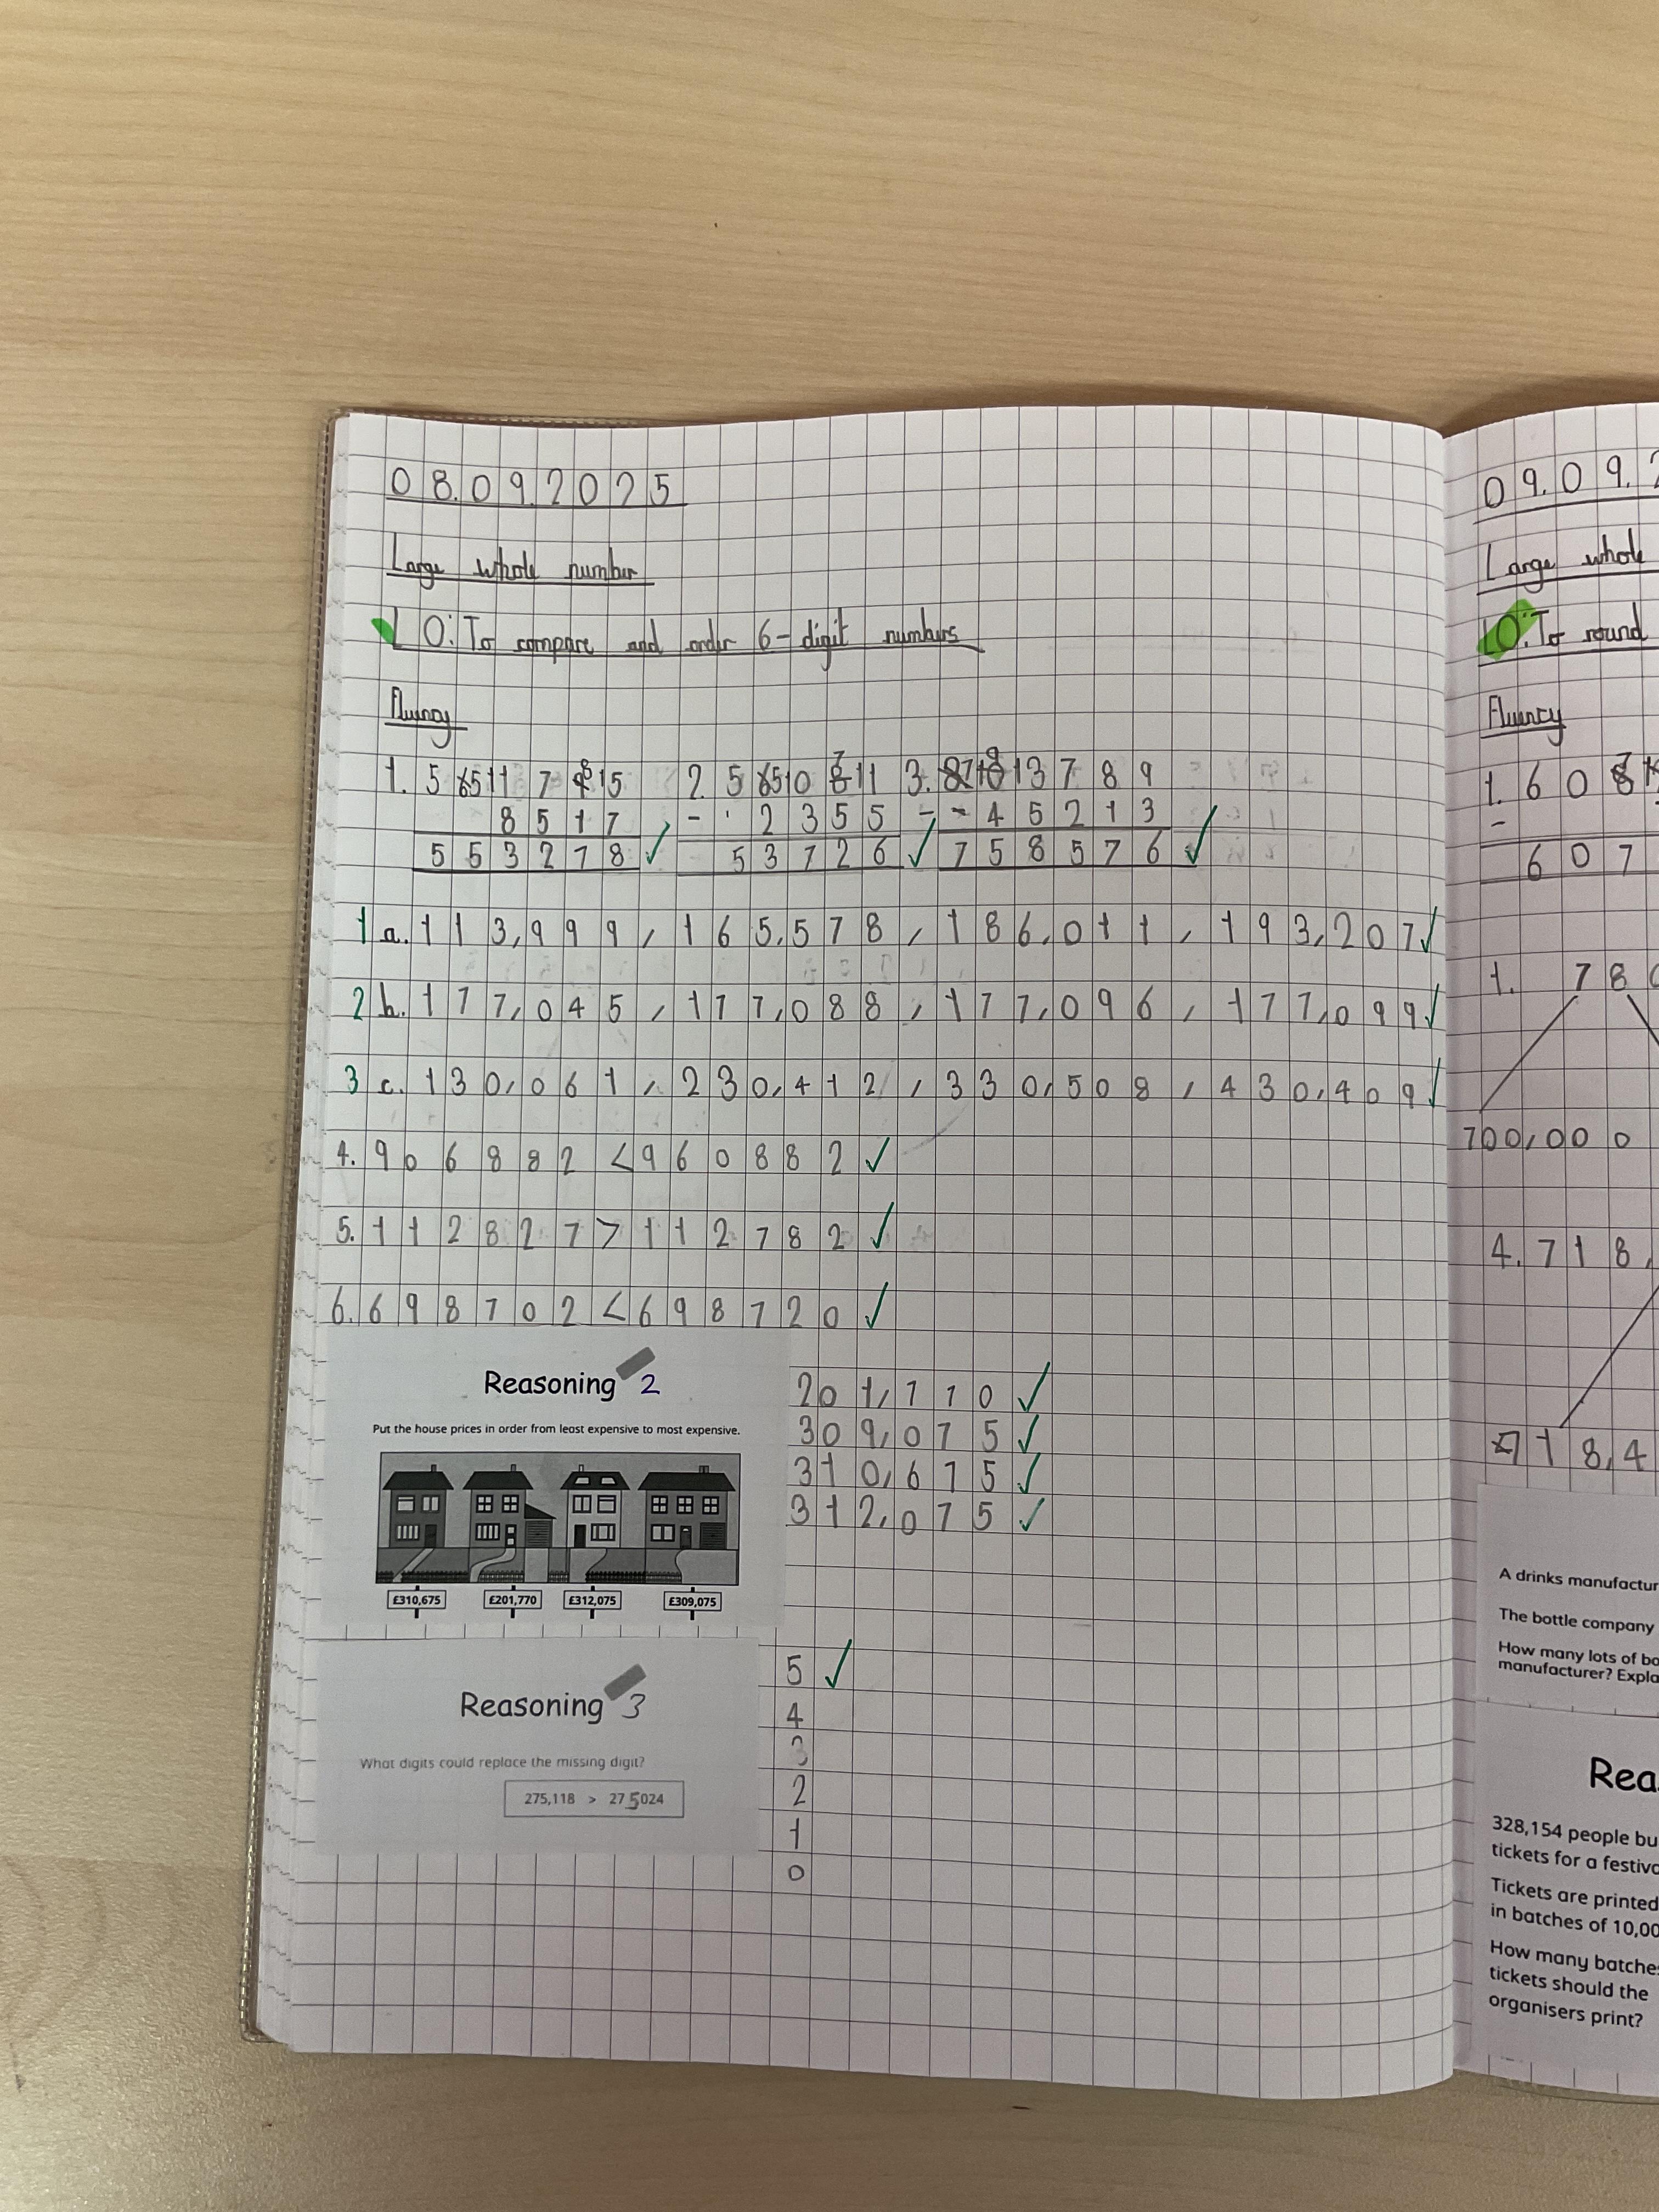 08.09.2025
Large whole number
LO: To compare and order 6-digit numbers
Fluency
1. 5 6 5 11 7 9 8 15
8517
553278
2. 5 6 5 10 8 7 11
- 2355
53726
3. 8 7 10 9 13 7 8 9
- 45213
758576
1 a. 113,999, 165,578, 186,011, 193,207
2 b. 177,045, 177,088, 177,096, 177,099
3 c. 130,061, 230,412, 330,508, 430,409
4. 906882 < 960882
5. 112827 > 112782
6. 698702 < 698720
Reasoning 2
Put the house prices in order from least expensive to most expensive.
£310,675 £201,770 £312,075 £309,075
201,770
309,075
310,675
312,075
Reasoning 3
What digits could replace the missing digit?
275,118 > 275024
5
4
3
2
1
0
09.09.
Large whole
LO: To round
Fluency
1. 608
-
607
1. 78
700,000
4. 718,
718,4
A drinks manufactur
The bottle company
How many lots of bo
manufacturer? Expla
Rea
328,154 people bu
tickets for a festiva
Tickets are printed
in batches of 10,00
How many batche
tickets should the
organisers print?